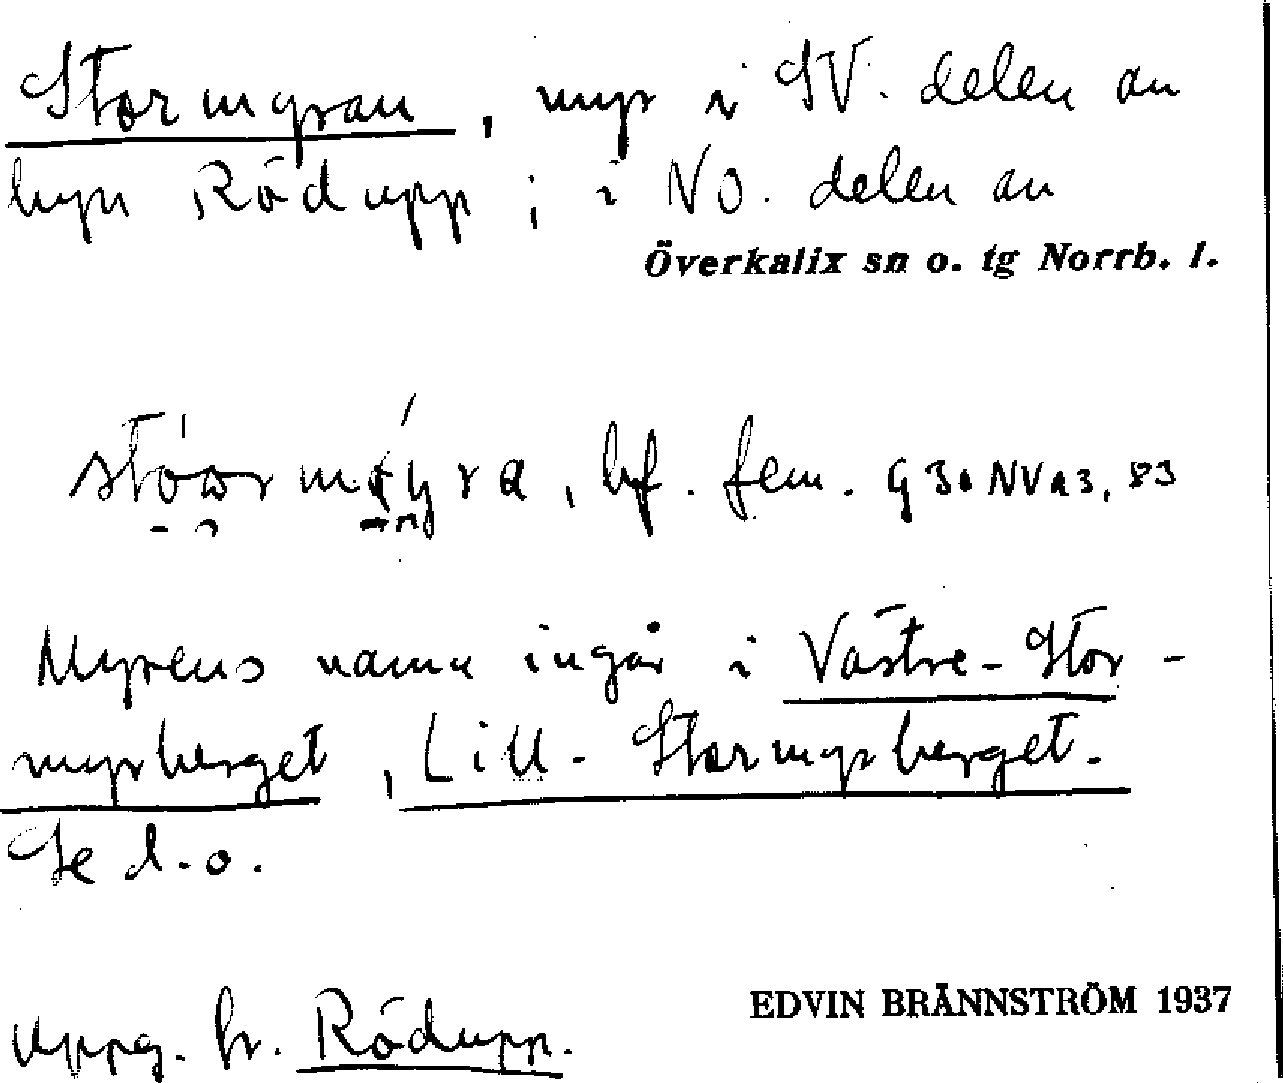 Stormyran, myr i SV. delen av
byn Rödupp; i NO. delen av
Överkalix sn o. tg Norrb. l.
bf. fem. G 30 NV a3, 83
Myrens namn ingår i Västre-Stor-
myrberget, Lill-Stormyrberget.
Se d.o.
Uppg. fr. Rödupp.
EDVIN BRÄNNSTRÖM 1937